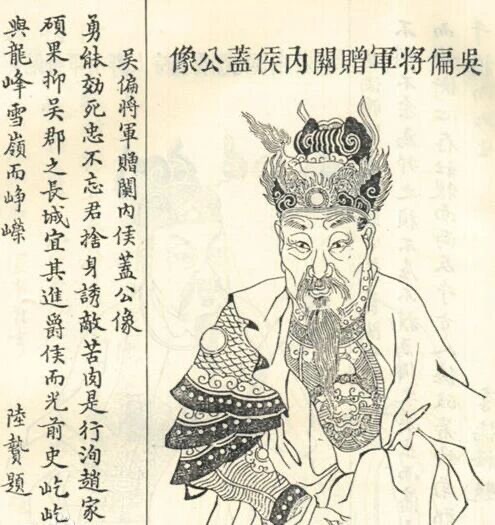 吳偏將軍贈關內侯蓋公像
吳偏將軍贈關內侯蓋公像
勇能効死忠不忘君捨身誘敵苦肉是行洵趙家
碩果抑吳郡之長城宜其進爵侯而光前史屹屹
與龍峰雪嶺而崢嶸 陸贄題